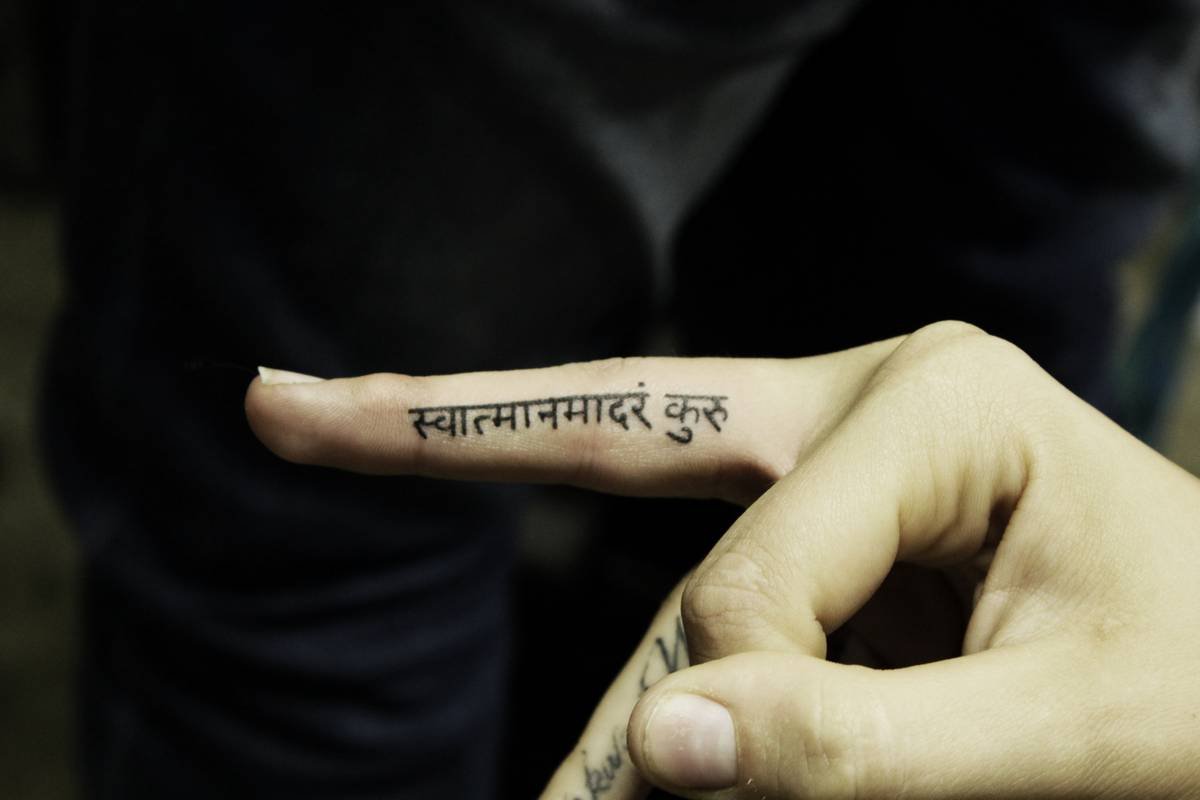 स्वात्मानमादरं कुरु